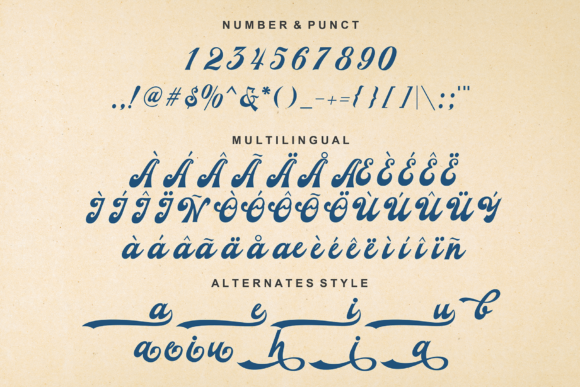 NUMBER & PUNCT
1234567890
.,!@#$%^&*()_-+={}[]|\:;"'
MULTILINGUAL
ÀÁÂÃÄÅÆÈÉÊË
ÌÍÎÏÑÒÓÔÕÖÙÚÛÜÝ
àáâãäåæèéêëìíîïñ
ALTERNATES STYLE
a e i u b
aoiu h i a